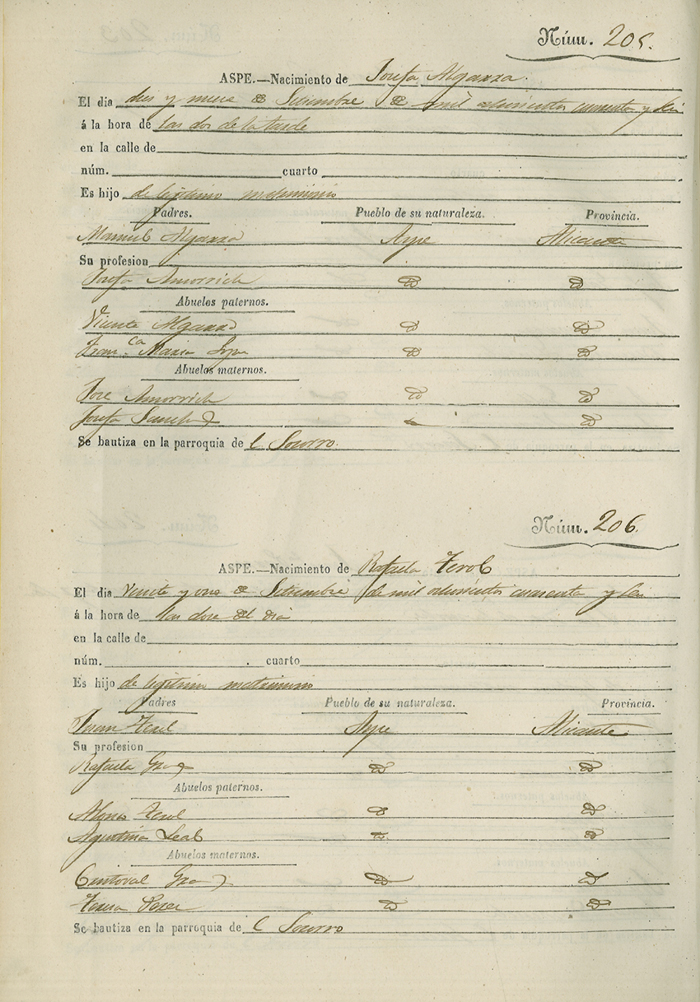 Núm. 205.
ASPE.—Nacimiento de Josefa Algarra.
El dia diez y nueve de Setiembre de mil ochocientos cuarenta y seis
á la hora de las dos de la tarde
en la calle de
núm. cuarto
Es hijo de legitimo matrimonio
Padres. Pueblo de su naturaleza. Provincia.
Manuel Algarra Aspe Alicante
Su profesion
Josefa Amorrich Id Id
Abuelos paternos.
Vicente Algarra Id Id
Fran.ca Maria Id Id
Abuelos maternos.
Jose Amorrich Id Id
Josefa Sanchez Id
Se bautiza en la parroquia de l Socorro.
Núm. 206.
ASPE.—Nacimiento de Rafaela Terol
El dia veinte y uno de Setiembre de mil ochocientos cuarenta y seis
á la hora de las doce del dia
en la calle de
núm. cuarto
Es hijo de legitimo matrimonio
Padres Pueblo de su naturaleza. Provincia.
Juan Terol Aspe Alicante
Su profesion
Rafaela Id Id
Abuelos paternos.
Alonso Terol Id Id
Agustina Leal Id Id
Abuelos maternos.
Cristoval Id Id
Teresa Perez Id Id
Se bautiza en la parroquia de l Socorro